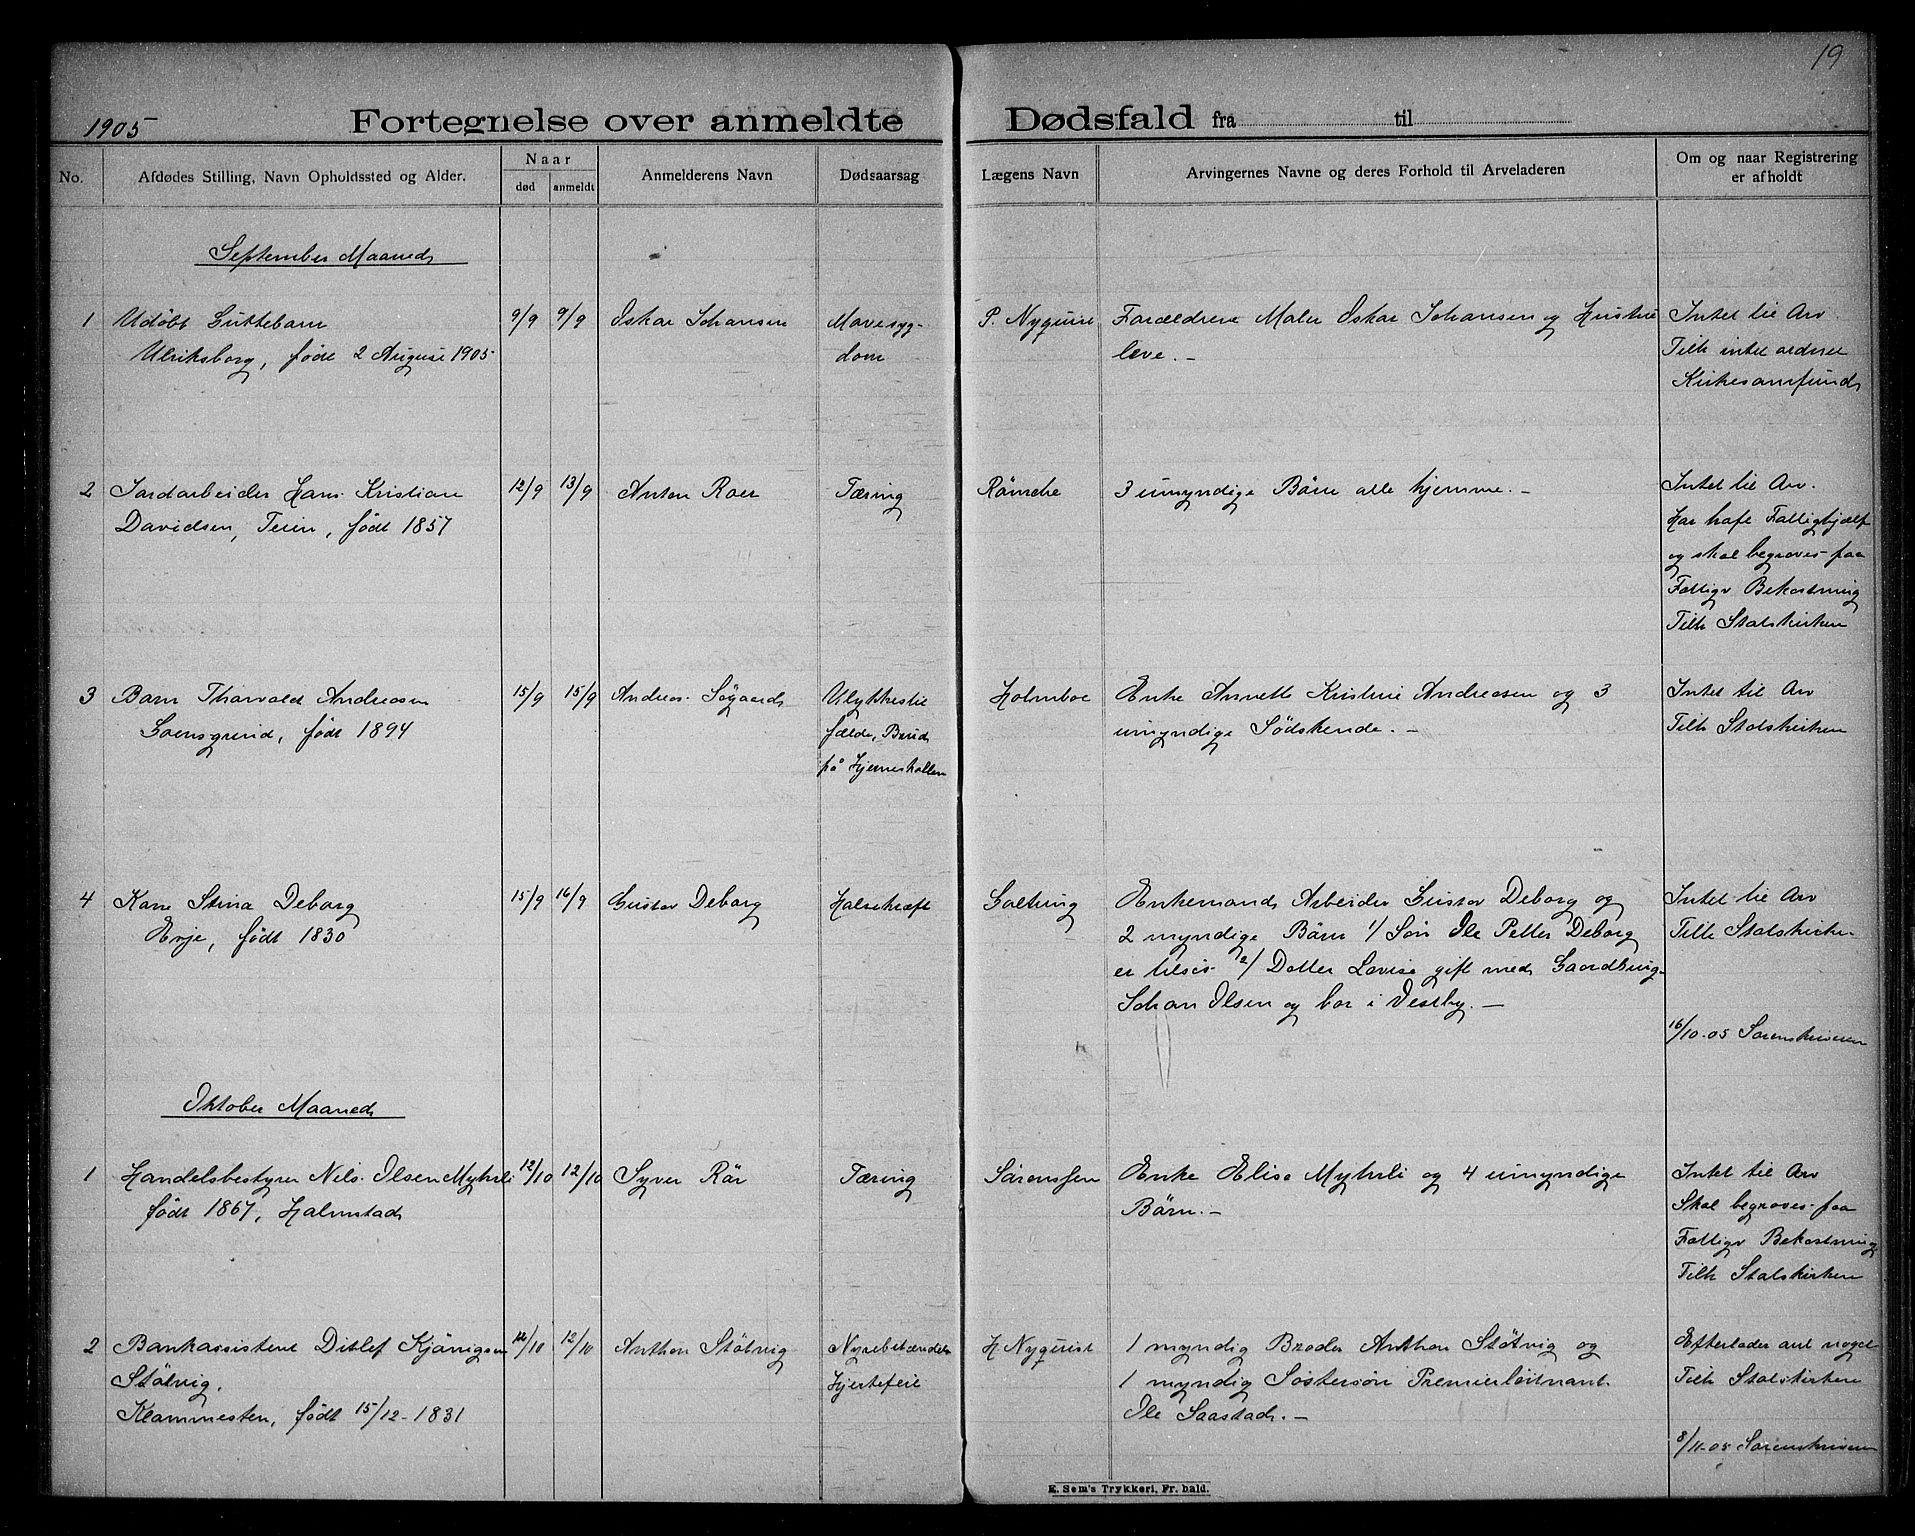 19
1905
Fortegnelse over anmeldte Dødsfald fra til
No.
Afdødes Stilling, Navn Opholdssted og Alder.
Naar
død
anmeldt
Anmelderens Navn
Dødsaarsag
Lægens Navn
Arvingernes Navne og deres Forhold til Arveladeren
Om og naar Registrering
er afholdt
September Maaned
1 Udøbt Guttebarn
Ulriksborg, født 2 August 1905
9/9 9/9
Oskar Johansen
Mavesyg-
dom
P. Nyquist
Forældrene Maler Oskar Johansen og Hustru
leve. –
Intet til Arv
Tilh intet ordnet
Kirkesamfund
2 Jordarbeider Hans Kristian
Davidsen, Teien, født 1857
12/9 13/9
Anton Roer
Tæring
Römcke
3 umyndige Börn alle hjemme. –
Intet til Arv.
Har haft Fattighjælp
og skal begraves paa
Fattigv Bekostning
Tilh Statskirken
3 Barn Thorvald Andreasen
Goensgrind, født 1894
15/9 15/9
Andreas Søgaard
Ulykkestil
fælde, Brud
på Hjerneskallen
Holmboe
Enke Annette Kristine Andreasen og 3
umyndige Södskende. –
Intet til Arv
Tilh Statskirken
4 Kone Stina Deborg
Evje, født 1830
15/9 16/9
Gustav Deborg
Halsekræft
Goltung
Enkemand Arbeider Gustav Deborg og
2 myndige Börn 1/ Sön Ole Petter Deborg
er tilsjs 2/ Datter Lovise gift med Gaardbrug-
Johan Olsen og bor i Vestby. –
Intet til Arv
Tilh Statskirken
16/10-05 Sorenskriveren
Oktober Maaned
1 Handelsbestyrer Nils Olsen Myhrli
født 1867, Halmstad
12/10 12/10
Syver Rör
Tæring
Sörenssen
Enke Elise Myhrli og 4 umyndige
Börn. –
Intet til Arv
Skal begraves paa
Fattigv Bekostning
Tilh Statskirken
2 Bankassistent Ditlef Kjönigsen
Stötvig,
Klommesten, født 15/12-1831
12/10 12/10
Anthon Stötvig
Nyrebetændels
Hjertefeil
H Nyquist
1 myndig Broder Anthon Stötvig og
1 myndig Söstersön Premierlöitnant
Ole Saastad. –
Efterlader ant noget
Tilh Statskirken
8/11-05 Sorenskriveren
E. Sem's Trykkeri, Fr. hald.